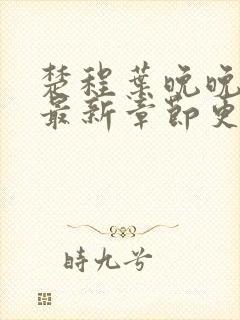 楚程葉晚晚
最新章節更
時九兮